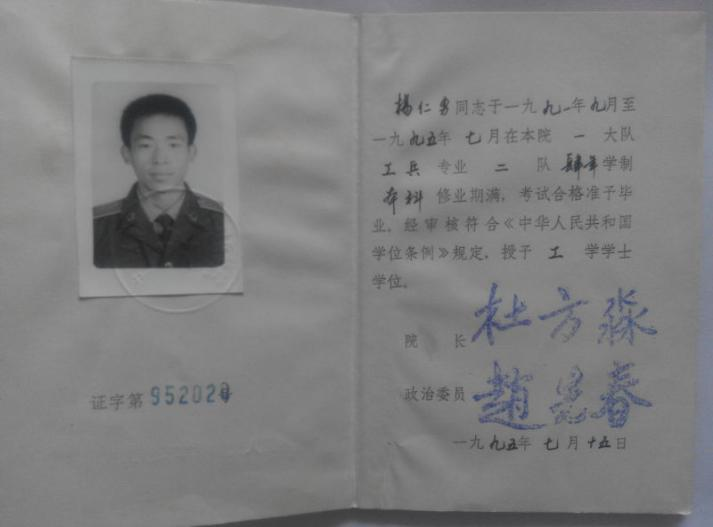 证字第952020
杨仁勇同志于一九九一年九月至
一九九五年七月在本院一大队
工兵专业二队肆年学制
本科修业期满，考试合格准予毕
业，经审核符合《中华人民共和国
学位条例》规定，授予工学学士
学位。
院长 杜方淼
政治委员 赵 春
一九九五年七月十五日